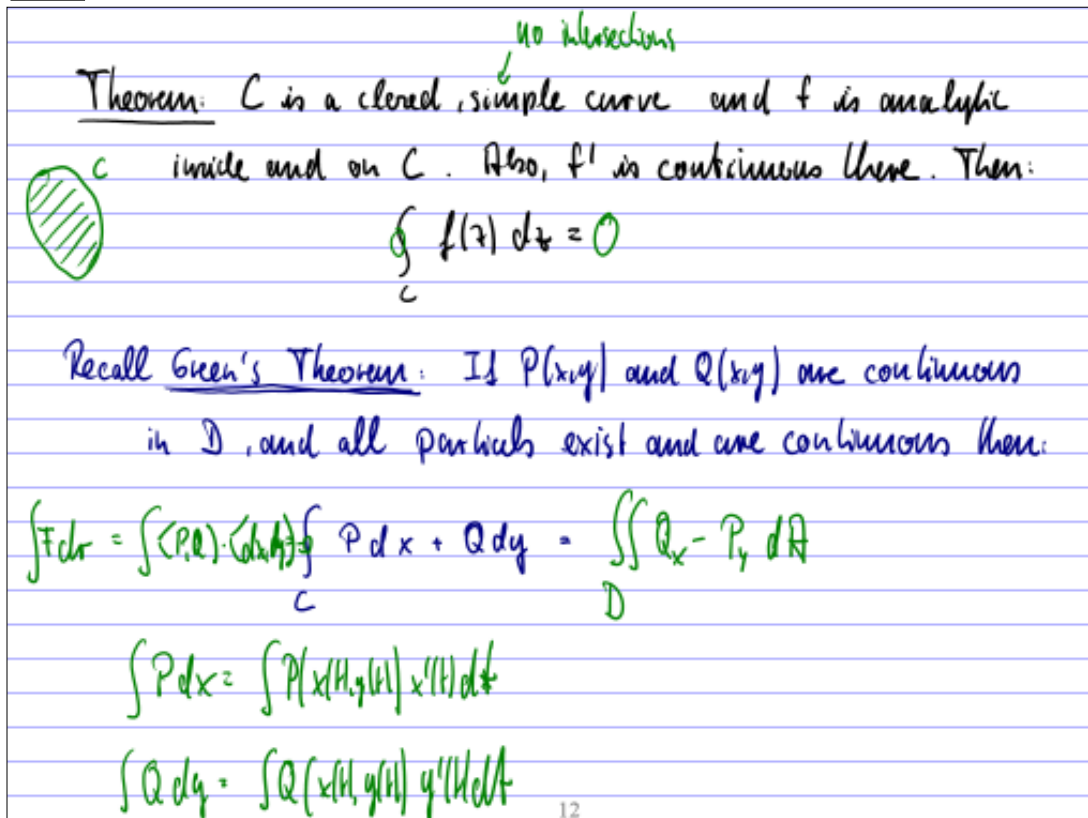 no intersections
Theorem: C is a closed, simple curve and f is analytic
inside and on C. Also, f' is continuous there. Then:
C
∮ f(z) dz = 0
C
Recall Green's Theorem: If P(x,y) and Q(x,y) are continuous
in D, and all partials exist and are continuous then:
∫F dr = ∫⟨P,Q⟩·⟨dx,dy⟩ = ∮ P dx + Q dy = ∬ Q_x - P_y dA
C D
∫ P dx = ∫ P(x(t), y(t)) x'(t) dt
∫ Q dy = ∫ Q(x(t), y(t)) y'(t) dt
12